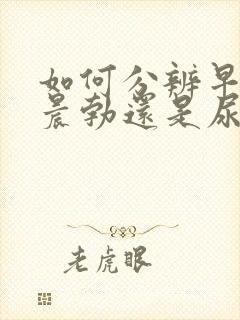 如何分辨早
晨勃還是尿
老虎眼